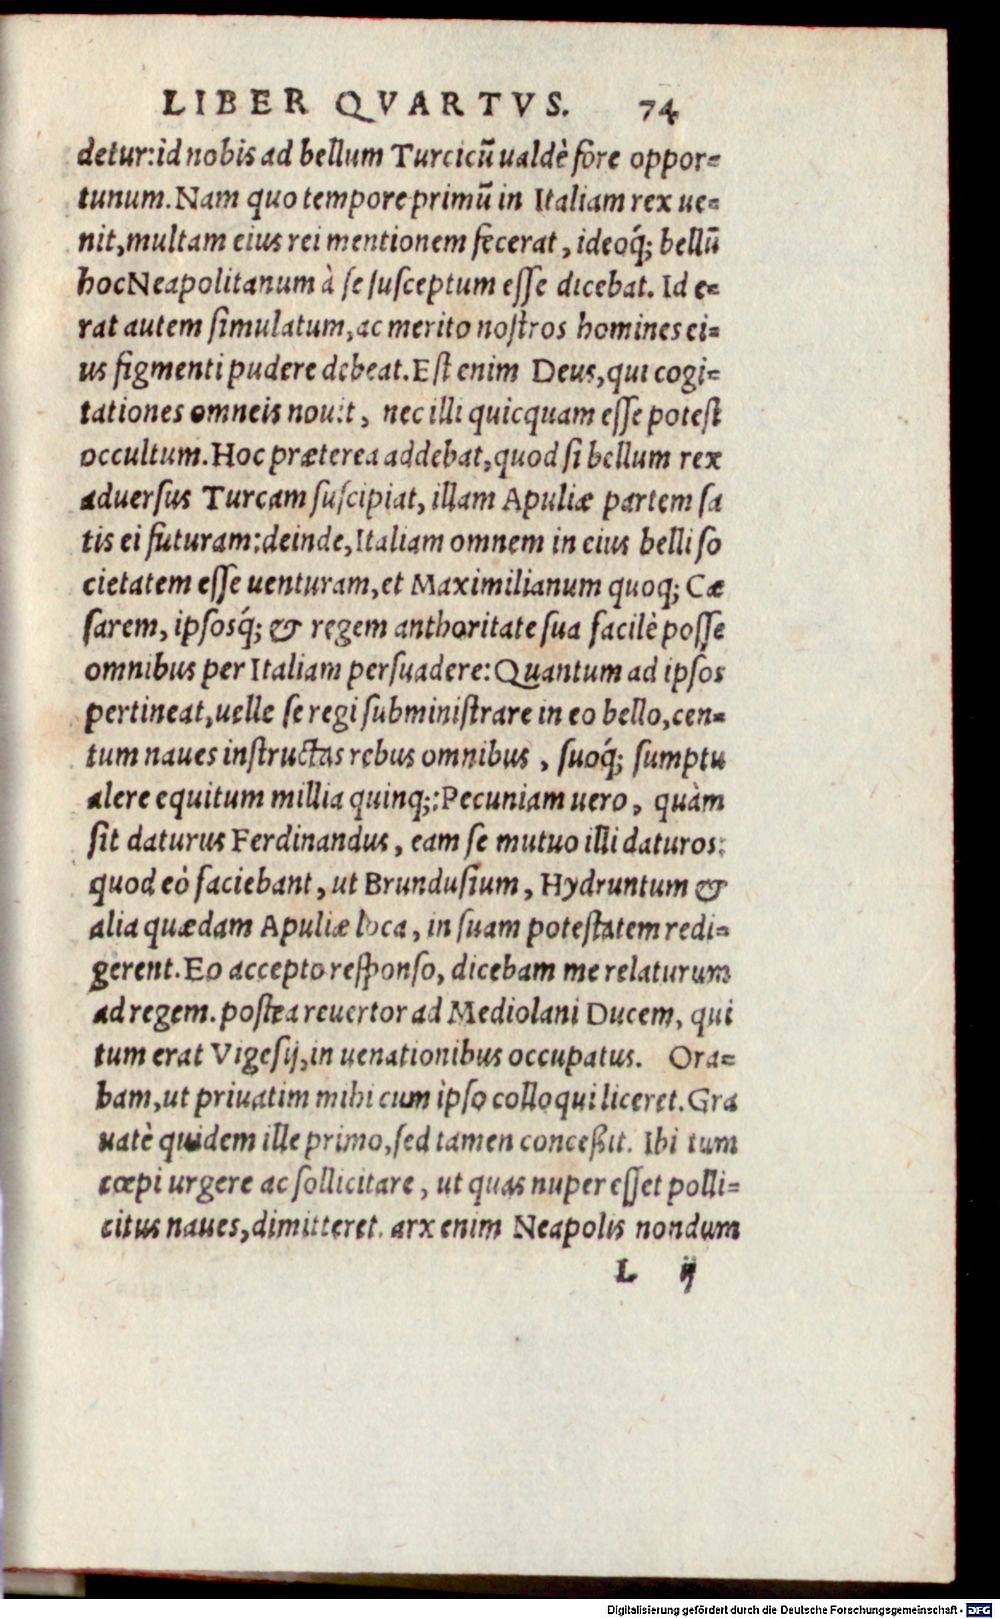 LIBER QVARTVS. 74
detur:id nobis ad bellum Turcicũ ualdè fore oppor=
tunum. Nam quo tempore primũ in Italiam rex ue=
nit, multam eius rei mentionem fecerat, ideoq́; bellũ
hoc Neapolitanum à se susceptum esse dicebat. Id e=
rat autem simulatum, ac merito nostros homines ei=
us figmenti pudere debeat. Est enim Deus, qui cogi=
tationes omneis nouit, nec illi quicquam esse potest
occultum. Hoc præterea addebat, quod si bellum rex
aduersus Turcam suscipiat, illam Apuliæ partem sa
tis ei futuram: deinde, Italiam omnem in eius belli so
cietatem esse uenturam, et Maximilianum quoq; Cæ
sarem, ipsosq́; & regem anthoritate sua facilè posse
omnibus per Italiam persuadere: Quantum ad ipsos
pertineat, uelle se regi subministrare in eo bello, cen=
tum naues instructas rebus omnibus, suoq́; sumptu
alere equitum millia quinq;: Pecuniam uero, quàm
sit daturus Ferdinandus, eam se mutuo illi daturos:
quod eò faciebant, ut Brundusium, Hydruntum &
alia quædam Apuliæ loca, in suam potestatem redi=
gerent. Eo accepto responso, dicebam me relaturum
ad regem. postea reuertor ad Mediolani Ducem, qui
tum erat Vigesij, in uenationibus occupatus. Ora=
bam, ut priuatim mihi cum ipso colloqui liceret. Gra
uatè quidem ille primo, sed tamen conceßit. Ibi tum
cœpi urgere ac sollicitare, ut quas nuper esset polli=
citus naues, dimitteret. arx enim Neapolis nondum
L ij
Digitalisierung gefördert durch die Deutsche Forschungsgemeinschaft - DFG